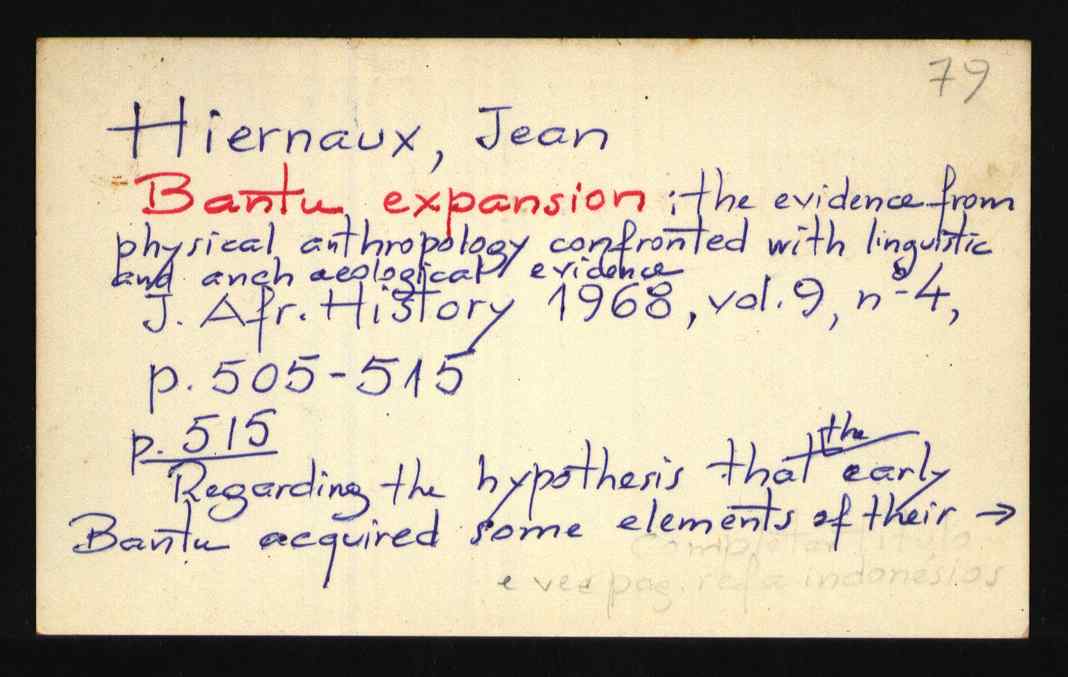 79
Hiernaux, Jean
Bantu expansion : the evidence from
physical anthropology confronted with linguistic
and archaeological evidence
J. Afr. History 1968, vol. 9, nº 4,
p. 505-515
p. 515
Regarding the hypothesis that the early
Bantu acquired some elements of their →
Completar título
e ver pag. ref a indonésios